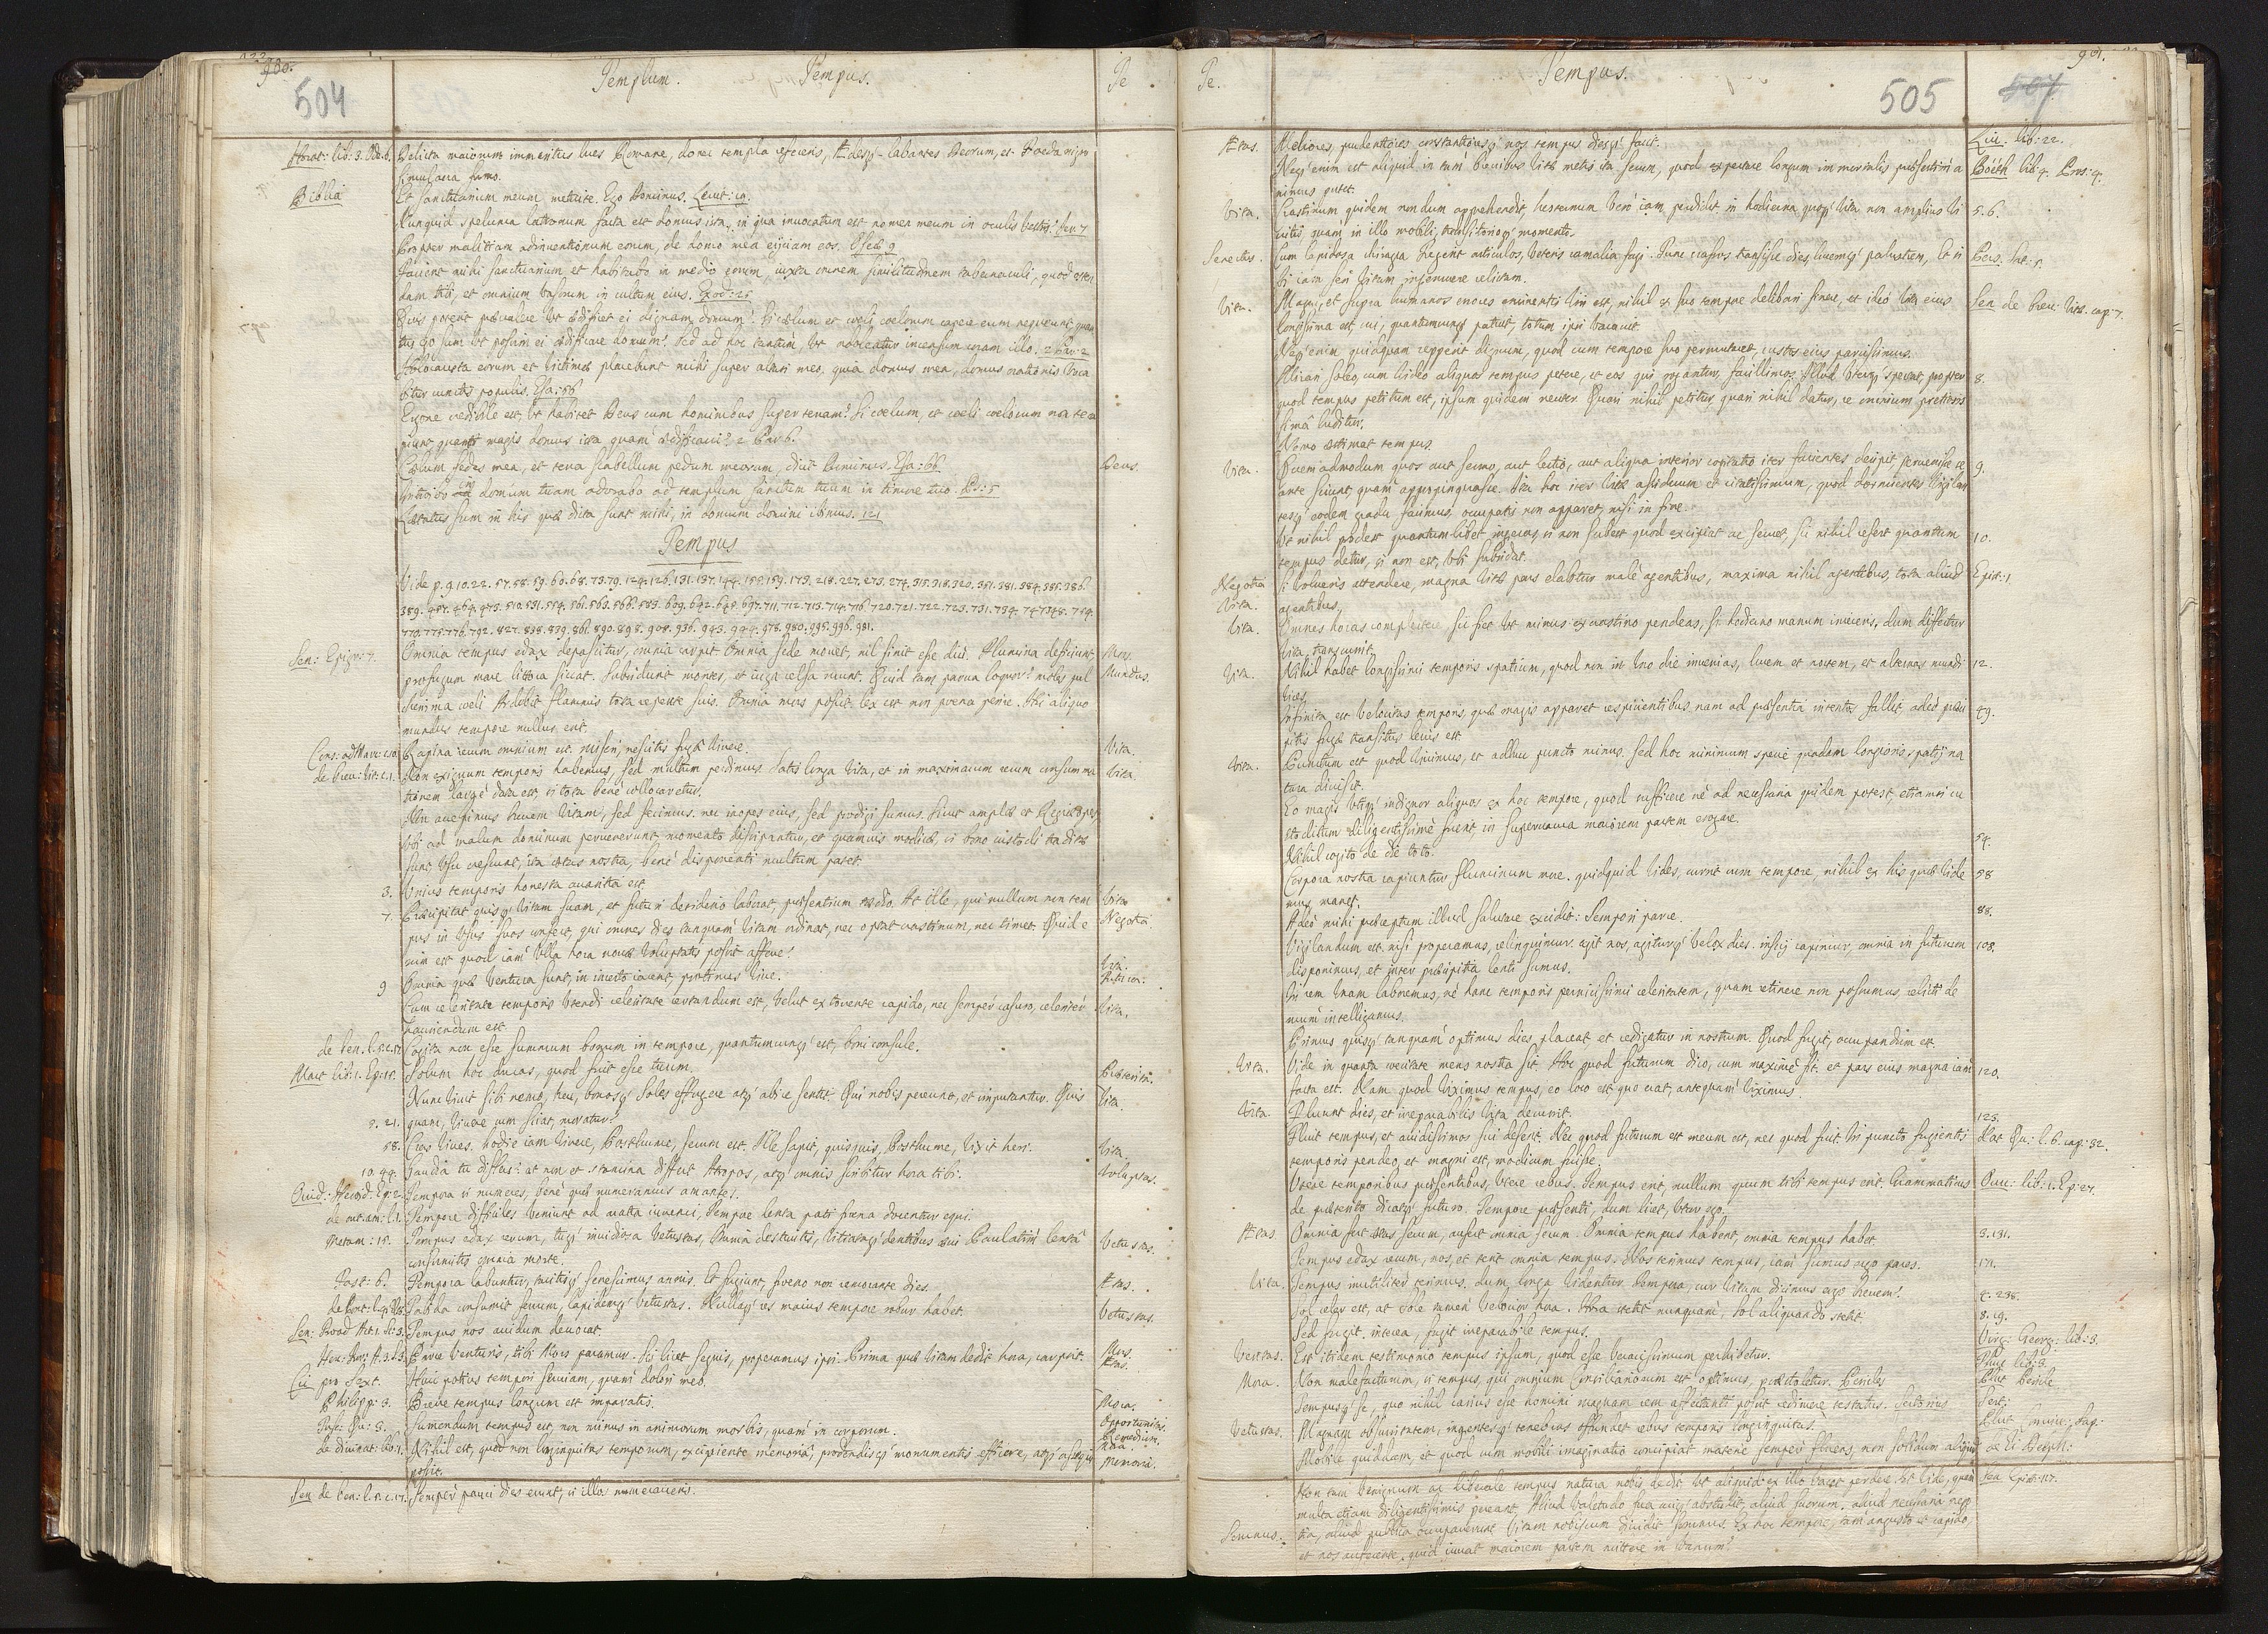 980.
504
Templum. Tempus.
Te
Horat: lib: 3. Ode. 6. Delicta maiorum immeritus lues Romane, donec templa refeceris, Ædesq- labantes Deorum, et Foeda nigro
simulacra fumo.
Biblia Et sanctuarium meum metuite. Ego Dominus. Leuit: 19.
Nunquid spelunca latronum facta est domus ista, in qua inuocatum est nomen meum in oculis vestris? Jer: 7
Propter malitiam adinventionum eorum, de domo mea eijciam eos. Oseæ 9
Facient mihi sanctuarium et habitabo in medio eorum, iuxta omnem similitudinem tabernaculi, quod osten
dam tibi, et omnium vasorum in cultum eius. Exod: 25
Quis poterit prævalere ut ædificet ei dignam domum? si cælum et coeli coelorum capere eum nequeunt, quan
tus ego sum ut possim ei ædificare domum? sed ad hoc tantum, ut adoleatur incensum coram illo. 2 Par: 2
Holocausta eorum et victimæ placebunt mihi super altari meo, quia domus mea, domus orationis voca
bitur cunctis populis. Esa: 56
Ergone credibile est, ut habitet Deus cum hominibus super terram? Si coelum, et coeli coelorum non te ca
piunt, quantò magis domus ista quam ædificaui? 2 Par 6.
Cælum sedes mea, et terra scabellum pedum meorum, dicit Dominus. Esa: 66 Deus.
Introibo in domum tuam adorabo ad templum sanctum tuum in timore tuo. Ps: 5
Lætatus sum in his quæ dicta sunt mihi, in domum domini ibimus. 121
Tempus
Vide p. 9. 10. 22. 57. 58. 59. 60. 68. 73. 79. 124. 126. 131. 137. 144. 158. 159. 173. 218. 227. 273. 274. 315. 318. 320. 351. 381. 384. 385. 386.
389. 457. 464. 475. 510. 531. 554. 561. 563. 566. 583. 609. 692. 695. 697. 711. 712. 713. 714. 716. 720. 721. 722. 723. 731. 734. 747. 748. 754.
770. 775. 776. 792. 827. 838. 839. 861. 890. 898. 908. 936. 943. 944. 978. 980. 995. 996. 981.
Sen: Epigr: 7. Omnia tempus edax depascitur, omnia carpit Omnia sede mouet, nil sinit esse diù. Flumina deficiunt Mors.
profugum mare littora siccat. Subsidunt montes, et iuga celsa ruunt. Quid tam parua loquor? moles pul Mundus.
cherrima coeli Ardebit flammis tota repente suis. Omnia mors poscit. lex est non poena perire. Hic aliquo
mundus tempore nullus erit.
Cons: ad Marc: c.10. Rapina rerum omnium est. miseri, nescitis fugæ viuere. Vita.
de breu: vit: c.1. Non exiguum temporis habemus, sed multum perdimus. satis longa vita, et in maximarum rerum consumma Vita.
tionem largè data est, si tota benè collocaretur.
Non accepimus breuem vitam, sed fecimus. nec inopes eius, sed prodigi sumus. Sicut amplæ et Regiæ opes
vbi ad malum dominum peruenerunt, momento dissipantur, et quamuis modicæ, si bono custodi traditæ
sunt, vsu crescunt, ita ætas nostra, benè disponenti multum patet.
3. Vnius temporis honesta auaritia est.
7. Præcipitat quisq; vitam suam, et futuri desiderio laborat, præsentium tædio. At ille, qui nullum non tem Vita
pus in vsus suos confert, qui omnes dies tanquam vitam ordinat, nec optat crastinum, nec timet. Quid e Negotia
nim est quod iam vlla hora nouæ voluptatis possit afferre?
9 Omnia quæ ventura sunt, in incerto iacent, protinus viue. Vita.
Cum celeritate temporis vtendi celeritate certandum est, velut ex torrente rapido, nec semper casuro, celeriter Vita.
hauriendum est.
de ben. l. 5. c. 17. Cogita non esse summum bonum in tempore, quantumcunq; est, boni consule.
Mart lib: 1. Ep: 15. Solum hoc ducas, quod fuit esse tuum. Præterita.
Nunc viuit sibi nemo, heu, bonosq; Soles effugere atq; abire sentit Qui nobis pereunt, et imputantur. Quis Vita.
5. 21. quam, viuere cum sciat, moratur?
58. Cras viues. hodie iam viuere, Posthume, serum est. Ille sapit, quisquis, Posthume, vixit heri. Vita.
10. 44. Gaudia tu differs? at non et stamina differt Atropos, atq; omnis scribitur hora tibi. Voluptas.
Ouid: Heroid. Ep: 2. Tempora si numeres, benè quæ numeramus amantes.
de art: am: l.1. Tempore difficiles veniunt ad aratra iuuenci, Tempore lenta pati frena docentur equi.
Metam: 15. Tempus edax rerum, tuq; inuidiosa vetustas, Omnia destruitis, vitiataq; dentibus æui Paulatim lentâ Vetustas.
consumitis omnia morte.
Fast: 6. Tempora labuntur, tacitisq; senescimus annis. Et fugiunt, fræno non remorante dies. Ætas.
Tabida consumit ferrum, lapidemq; vetustas. Nullaq; res maius tempore robur habet. Vetustas.
Sen: Troad Act. 1. Sc: 3. Tempus nos auidum deuorat.
Her: fur: A. 3. S. 3. Parce venturis, tibi Mors paramur. Sis licet segnis, properamus ipsi. Prima quæ vitam dedit hora, carpsit. Mors. Ætas.
Cic pro Sext. Huic potius tempori seruiam, quam dolori meo.
Philipp: 3. Breue tempus longum est imparatis. Mora.
Tusc: Qu: 3. Sumendum tempus est, non minus in animorum morbis, quam in corporum. Opportunitas. Remedium.
de diuinat: lib. 1. Nihil est, quod non longinquitas temporum, excipiente memoriâ, prodendisq; monumentis efficere, atq; assequi Mora. Memoria.
possit.
Sen de ben: l. 5. c. 17. Semper pauci dies erunt, si illos numeraueris.
Te.
Tempus.
505
507
981.
Ætas. Meliores, prudentiores, constantioresq; nos tempus diesq; facit. Liu: lib: 22.
Neq; enim est aliquid in tam breuibus vitæ metis ita serum, quod expectare longum immortalis præsertim a Böeth lib: 4. Pros: 4.
nimus putet.
Vita. Crastinum quidem nondum apprehendit, hesternum verò iam perdidit. in hodierna quoq; vita non amplius vi 5. 6.
uitis, quam in illo mobili, transitorioq; momento.
Senectus. Cum lapidosa chiragra Fregerit articulos, veteris ramalia fagi. Tunc crassos transisse dies, lucemq; palustrem, Et si Pers. Sat: 5.
bi iam seri vitam ingemuere relictam.
Vita. Magni, et supra humanos errores eminentis viri est, nihil ex suo tempore delibari sinere, et ideò vita eius Sen de breu: vitæ. cap: 7.
longissima est, cui, quantumcunq; patuit, totum ipsi vacauit
Neq; enim quidquam reperit dignum, quod cum tempore suo permutaret, custos eius parcissimus.
Mirari soleo, cum video aliquos tempus petere, et eos qui rogantur, facillimos. Illud vterq; spectat, propter 8.
quod tempus petitum est, ipsum quidem neuter. Quasi nihil petitur, quasi nihil datur, re omnium pretiosis
simâ luditur.
Nemo æstimat tempus.
Vita. Quemadmodum quos aut sermo, aut lectio, aut aliqua interior cogitatio iter facientes decipit, peruenisse se 9.
ante sciunt, quam appropinquasse. Ita hoc iter vitæ assiduum et citatissimum, quod dormientes vigilan
tesq; eodem gradu facimus. occupatis non apparet, nisi in fine.
Vt nihil prodest quantumlibet ingeras, si non subest quod excipiat ac seruet, sic nihil refert quantum 10.
tempus detur, si non est, vbi subsidat.
Negotia Si volueris attendere, magna vitæ pars elabitur malè agentibus, maxima nihil agentibus, tota aliud Epist: 1
Vita. agentibus.
Vita. Omnes horas complectere, sic fiet vt minus ex crastino pendeas, si hodierno manum inieceris, dum differtur
vita, transcurrit.
Vita. Nihil habet longissimi temporis spatium, quod non in vno die inuenias, lucem et noctem, et alternas mundi 12.
vices.
Infinita est velocitas temporis, quæ magis apparet respicientibus, nam ad præsentia intentos fallit, adeò præci 49.
pitis fugæ transitus leuis est.
Vita. Punctum est quod viuimus, et adhuc puncto minus. sed hoc minimum specie quadam longioris spatij na
tura diuisit.
Eo magis vtiq; indignor aliquos ex hoc tempore, quod sufficere nè ad necessaria quidem potest, etiamsi cu
stoditum diligentissimè fuerit, in superuacua maiorem partem erogare.
Nihil cogito de die toto. 54.
Corpora nostra rapiuntur fluminum more. quidquid vides, currit cum tempore, nihil ex his quæ vide 58
mus manet.
Adeò mihi præceptum illud salutare excidit: Tempori parce. 88.
Vigilandum est. nisi properamus, relinquimur. agit nos, agiturq; velox dies. inscij rapimur, omnia in futurum 108.
disponimus, et inter præcipitia lenti sumus.
In rem vnam laboremus, nè hanc temporis pernicissimi celeritatem, quam retinere non possumus, relicti de
mùm intelligamus.
Primus quisq; tanquam optimus dies placeat et redigatur in nostrum. Quod fugit, occupandum est.
Vita. Vide in quanta cæcitate mens nostra sit. Hoc quod futurum dico, cum maximè fit. et pars eius magna iam 120.
facta est. Nam quod viximus tempus, eo loco est quo erat, antequam viximus.
Vita. Fluunt dies, et irreparabilis vita decurrit. 123.
Fluit tempus, et auidissimos sui deserit. Nec quod futurum est meum est, nec quod fuit. In puncto fugientis Nat. Qu: l. 6. cap: 32.
temporis pendeo, et magni est, modicum fuisse.
Vtere temporibus præsentibus, vtere rebus. Tempus erit, nullum quum tibi tempus erit. Grammaticus Ouu: lib: 1. Ep: 27.
de præterito dicatq; futuro. Tempore præsenti, dum licet, vtor ego.
Ætas Omnia fert ætas secum, aufert omnia secum. Omnia tempus habent, omnia tempus habet 3. 131.
Tempus edax rerum, nos, et terit omnia tempus. Nos terimus tempus, iam sumus ergo pares. 171.
Vita. Tempus inutiliter terimus, dum longa videntur Tempora, cur vitam dicimus ergo breuem? 4. 238.
Sol celer est, at sole tamen velocior hora. Hora stetit nunquam, sol aliquando stetit 8. 19.
Sed fugit interea, fugit irreparabile tempus. Virg: Georg: lib: 3.
Veritas. Est itidem testimonio tempus ipsum, quod esse veracissimum perhibetur. Phæd lib: 3.
Mora. Non malefacturum, si tempus, qui omnium Consiliariorum est optimus, præstoletur. Pericles Plut Pericle
Tempusq; se, quo nihil carius esse homini magnam rem affectanti posset, redimere testatus. Sertorius Sert:
Vetustas. Magnam obscuritatem, ingentesq; tenebras offundet rebus temporis longinquitas. Plut Conuiu: Sap:
Mobile quiddam, et quod cum mobili imaginatio concipiat materie semper fluens, non solidum aliquid de Ei Delph:
Non tam benignum ac liberale tempus natura nobis dedit, vt aliquid ex illo vacet perdere. Et vide, quam Sen Epist: 117.
multa etiam diligentissimis pereant. Aliud valetudo sua cuiq; abstulit, aliud suorum. aliud necessaria nego
Somnus. tia, aliud publica occupauerunt. Vitam nobiscum diuidit somnus. Ex hoc tempore, tam angusto et rapido,
et nos auferente, quid iuuat maiorem partem mittere in vanum?